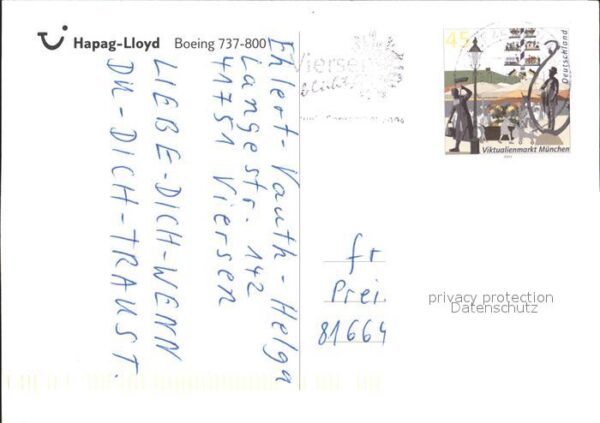 Hapag-Lloyd Boeing 737-800
Ehlert-Vauth-Helga
Langestr. 142
41751 Viersen
LIEBE-DICH-WENN
DU-DICH-TRAUST.
Viersen
blüht
45
Deutschland
Viktualienmarkt München
fr
Prei
81664
privacy protection
Datenschutz